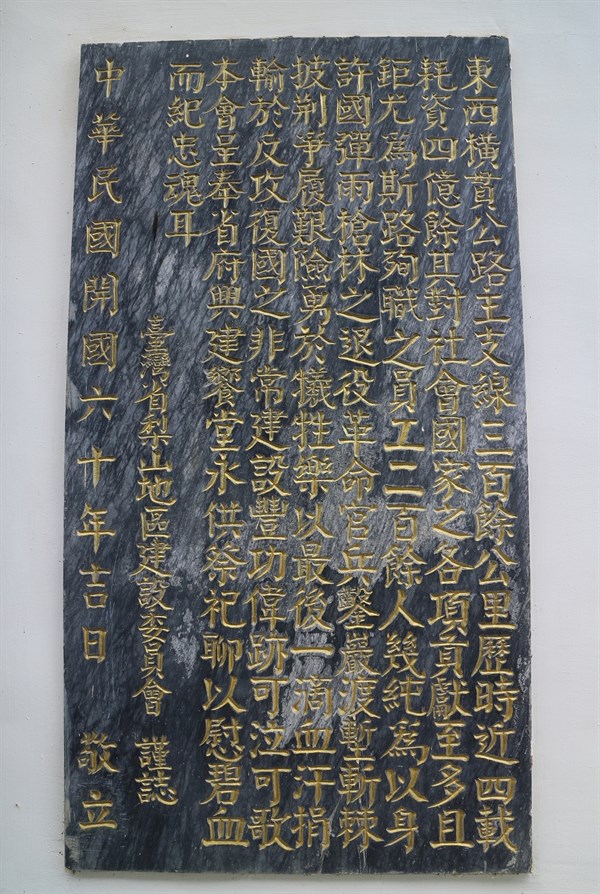 東西橫貫公路主支線三百餘公里歷時近四載
耗資四億餘其對社會國家之各項貢獻至多且
鉅尤為斯路殉職之員工二百餘人幾純為以身
許國彈雨槍林之退役革命官兵鑿巖渡塹斬棘
披荆爭履艱險勇於犧牲樂以最後一滴血汗捐
輸於反攻復國之非常建設豐功偉跡可泣可歌
本會呈奉省府興建饗堂永供祭祀聊以慰碧血
而紀忠魂耳
臺灣省梨山地區建設委員會 謹誌
中華民國開國六十年吉日 敬立